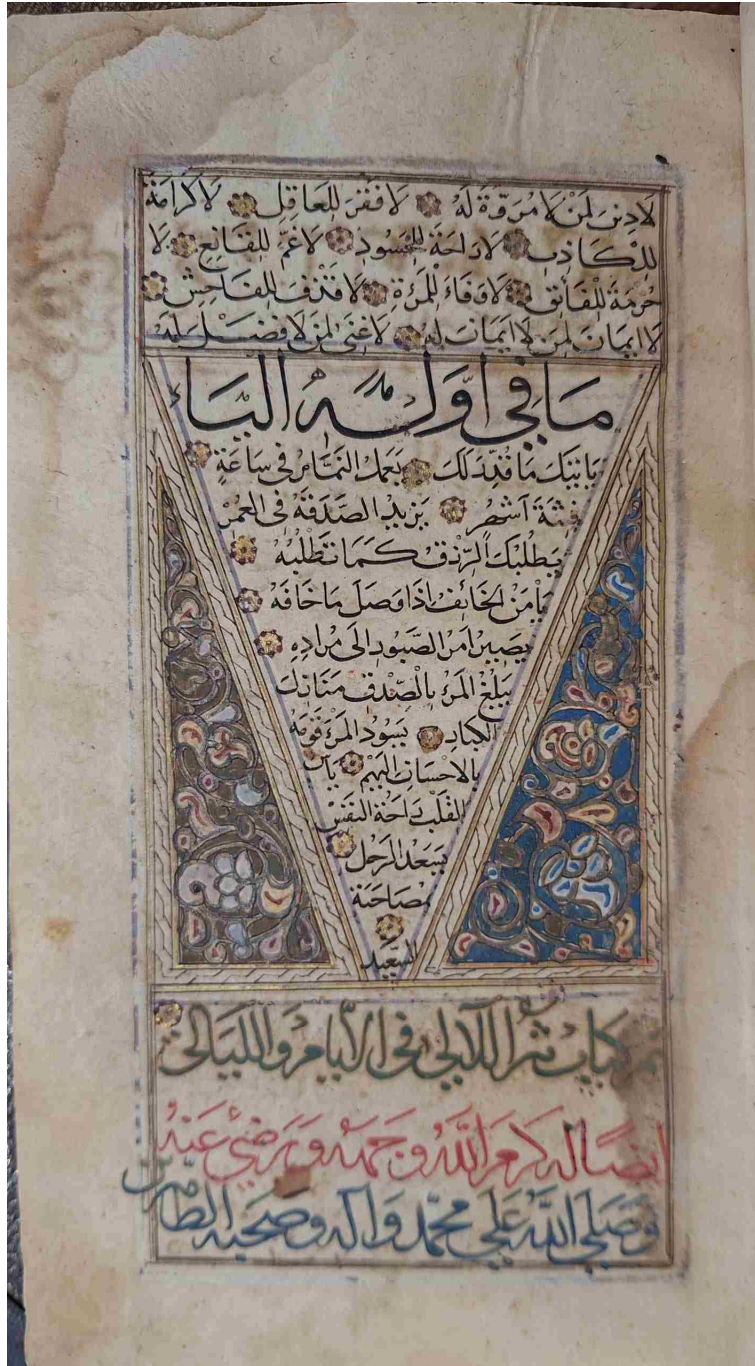 لَا دِينَ لِمَنْ لَا مُرُوَّةَ لَهُ لَا فَقْرَ لِلْعَاقِلِ لَا كَرَامَةَ
لِلْكَاذِبِ لَا رَاحَةَ لِلْحَسُودِ لَا غَمَّ لِلْقَانِعِ لَا
حُرْمَةَ لِلْفَاسِقِ لَا وَفَاءَ لِلْمَرْءَةِ لَا لِلْفَاحِشِ
لَا اِيمَانَ لِمَنْ لَا اَمَانَ لَهُ لَا غِنَى لِمَنْ لَا فَضْلَ لَهُ
مَا فِي اَوَّلِهِ الْيَاءُ
يَاتِيكَ مَا قُدِّرَ لَكَ يَعْمَلُ النَّمَّامُ فِي سَاعَةٍ
فِتْنَةَ اَشْهُرٍ يَزِيدُ الصَّدَقَةُ فِي الْعُمْرِ
يَطْلُبُكَ الرِّزْقُ كَمَا تَطْلُبُهُ
يَأْمَنُ الْخَائِفُ اِذَا وَصَلَ مَا خَافَهُ
يَصِيرُ اَمْرُ الصَّبُورِ اِلَى مُرَادِهِ
يَبْلُغُ الْمَرْءُ بِالصِّدْقِ مَنَازِلَ
الْكِبَارِ يَسُودُ الْمَرْءُ قَوْمَهُ
بِالْاِحْسَانِ اِلَيْهِمْ يَأْسُ
الْقَلْبِ رَاحَةُ النَّفْسِ
يَسْعَدُ الرَّجُلُ
بِمُصَاحَبَةِ
السَّعِيدِ
كتاب نثر اللآلي في الايام والليالي
كرم الله وجهه ورضي عنه
وصلى الله على محمد وآله وصحبه الطاهرين